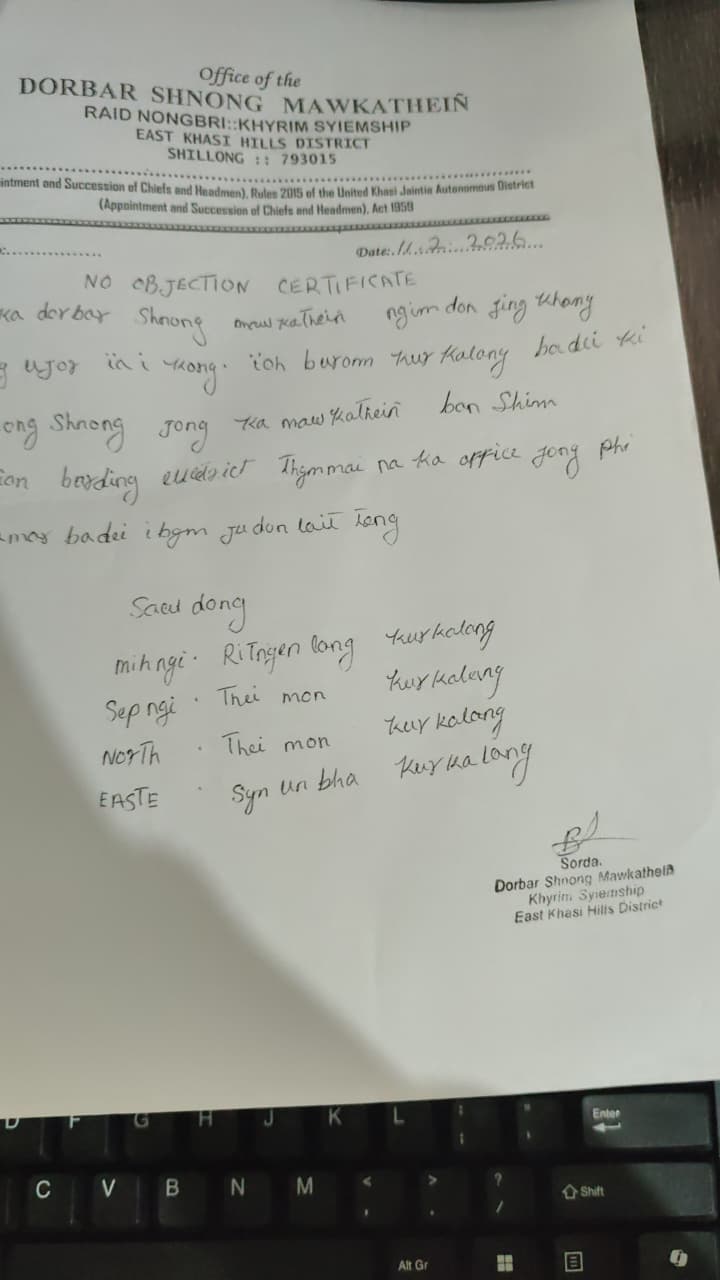 Office of the
DORBAR SHNONG MAWKATHEIÑ
RAID NONGBRI::KHYRIM SYIEMSHIP
EAST KHASI HILLS DISTRICT
SHILLONG :: 793015
intment and Succession of Chiefs and Headmen), Rules 2015 of the United Khasi Jaintia Autonomous District
(Appointment and Succession of Chiefs and Headmen), Act 1959
Date:.11.2.2026...
NO OBJECTION CERTIFICATE
ka dorbar Shnong mawkathein ngim don jing khang
ujor ïa i kong. ïoh burom kur kalang badei ki
ong Shnong jong ka mawkatheiñ ban Shim
ban Thymmai na ka office jong phi
badei i bym ju don lait Tang
Saw dong
mihngi . RiTngen lang kurkalang
Sepngi . Thei mon kurkalang
NORTH . Thei mon kurkalang
EASTE . Syn un bha kurkalang
Sorda.
Dorbar Shnong Mawkatheiñ
Khyrim Syiemship
East Khasi Hills District
D F G H J K L : ; " ' Enter
C V B N M < , > . ? / Shift
Alt Gr